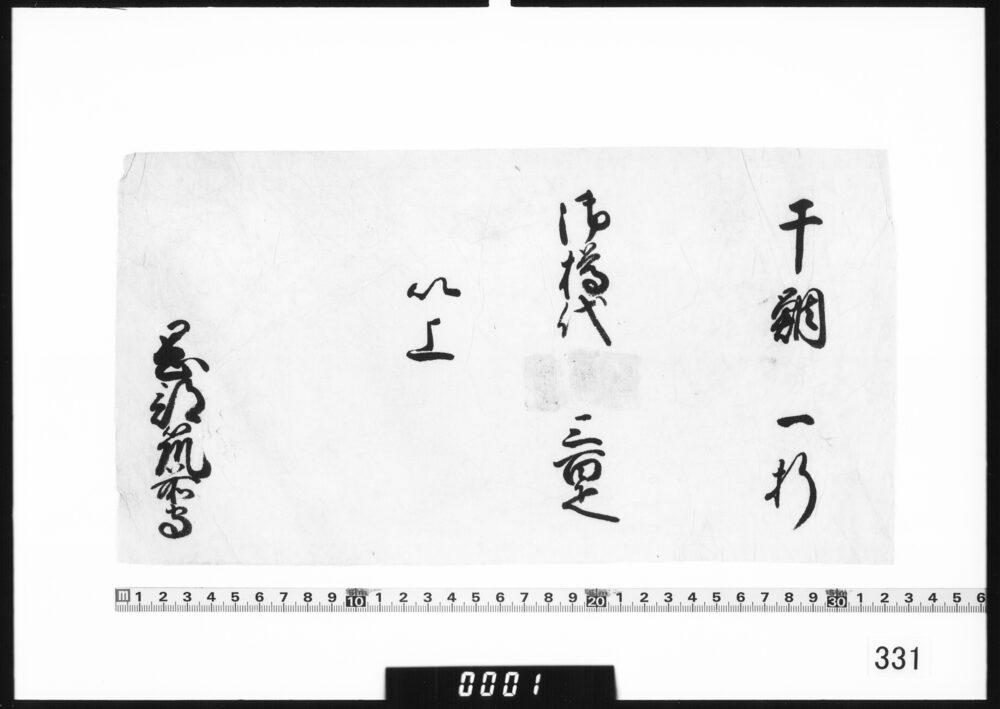 干鯛　一折
御樽代　三百疋
以上
筑前守
1 2 3 4 5 6 7 8 9 10 1 2 3 4 5 6 7 8 9 20 1 2 3 4 5 6 7 8 9 30 1 2 3 4 5 6
331
0001